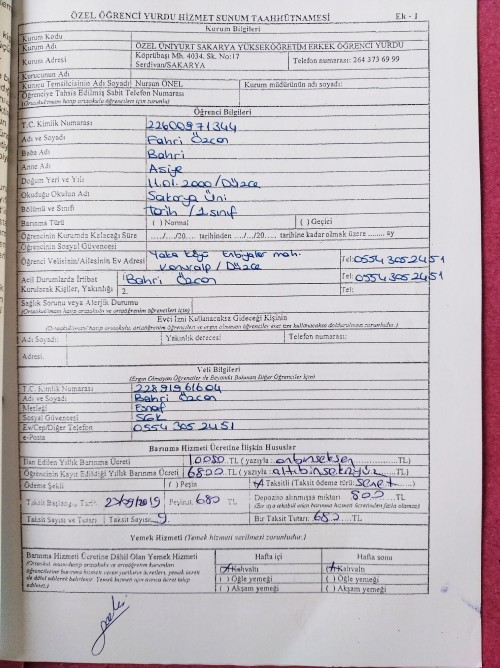 ÖZEL ÖĞRENCİ YURDU HİZMET SUNUM TAAHHÜTNAMESİ Ek - 1
Kurum Bilgileri
Kurum Kodu
Kurum Adı ÖZEL ÜNİYURT SAKARYA YÜKSEKÖĞRETİM ERKEK ÖĞRENCİ YURDU
Kurum Adresi Köprübaşı Mh. 4034. Sk. No:17 Serdivan/SAKARYA Telefon numarası: 264 373 69 99
Kurucunun Adı
Kurucu Temsilcisinin Adı Soyadı Nurşun ÖNEL Kurum müdürünün adı soyadı:
Öğrenciye Tahsis Edilmiş Sabit Telefon Numarası
(Ortaokul/imam hatip ortaokulu öğrencileri için zorunlu)
Öğrenci Bilgileri
T.C. Kimlik Numarası 22600971344
Adı ve Soyadı Fahri Özcan
Baba Adı Bahri
Anne Adı Asiye
Doğum Yeri ve Yılı 11.01.2000/Düzce
Okuduğu Okulun Adı Sakarya Üni
Bölümü ve Sınıfı Tarih / 1.sınıf
Barınma Türü ( ) Normal ( ) Geçici
Öğrencinin Kurumda Kalacağı Süre ..../..../20.... tarihinden ..../..../20.... tarihine kadar olmak üzere ........ ay
Öğrencinin Sosyal Güvencesi
Öğrenci Velisinin/Ailesinin Ev Adresi mah. / Düzce Tel: 0554 305 2451
Acil Durumlarda İrtibat Kurulacak Kişiler, Yakınlığı 1. Bahri Özcan Tel: 0554 305 2451
2. Tel:
Sağlık Sorunu veya Alerjik Durumu
Evci İzni Kullanacaksa Gideceği Kişinin
Adı Soyadı: Yakınlık derecesi: Telefon numarası:
Adresi:
Veli Bilgileri
(Ergin Olmayan Öğrenciler ile Devamlı Bulunan Diğer Öğrenciler İçin)
T.C. Kimlik Numarası 22891961604
Adı ve Soyadı Bahri Özcan
Mesleği Esnaf
Sosyal Güvencesi SGK
Ev/Cep/Diğer Telefon 0554 305 2451
e-Posta
Barınma Hizmeti Ücretine İlişkin Hususlar
İlan Edilen Yıllık Barınma Ücreti 10080 TL (yazıyla onbinseksen TL)
Öğrencinin Kayıt Edildiği Yıllık Barınma Ücreti 6800 TL (yazıyla altıbinsekizyüz TL)
Ödeme Şekli ( ) Peşin Taksitli (Taksit ödeme türü: Senet )
Taksit Başlangıç Tarihi 27/09/2019 Peşinat: 680 TL Depozito alınmışsa miktarı 800 TL
Taksit Sayısı ve Tutarı Taksit Sayısı: 9 Bir Taksit Tutarı: 680 TL
Yemek Hizmeti (Yemek hizmeti verilmesi zorunludur.)
Barınma Hizmeti Ücretine Dâhil Olan Yemek Hizmeti Hafta içi Hafta sonu
Kahvaltı Kahvaltı
( ) Öğle yemeği ( ) Öğle yemeği
( ) Akşam yemeği ( ) Akşam yemeği